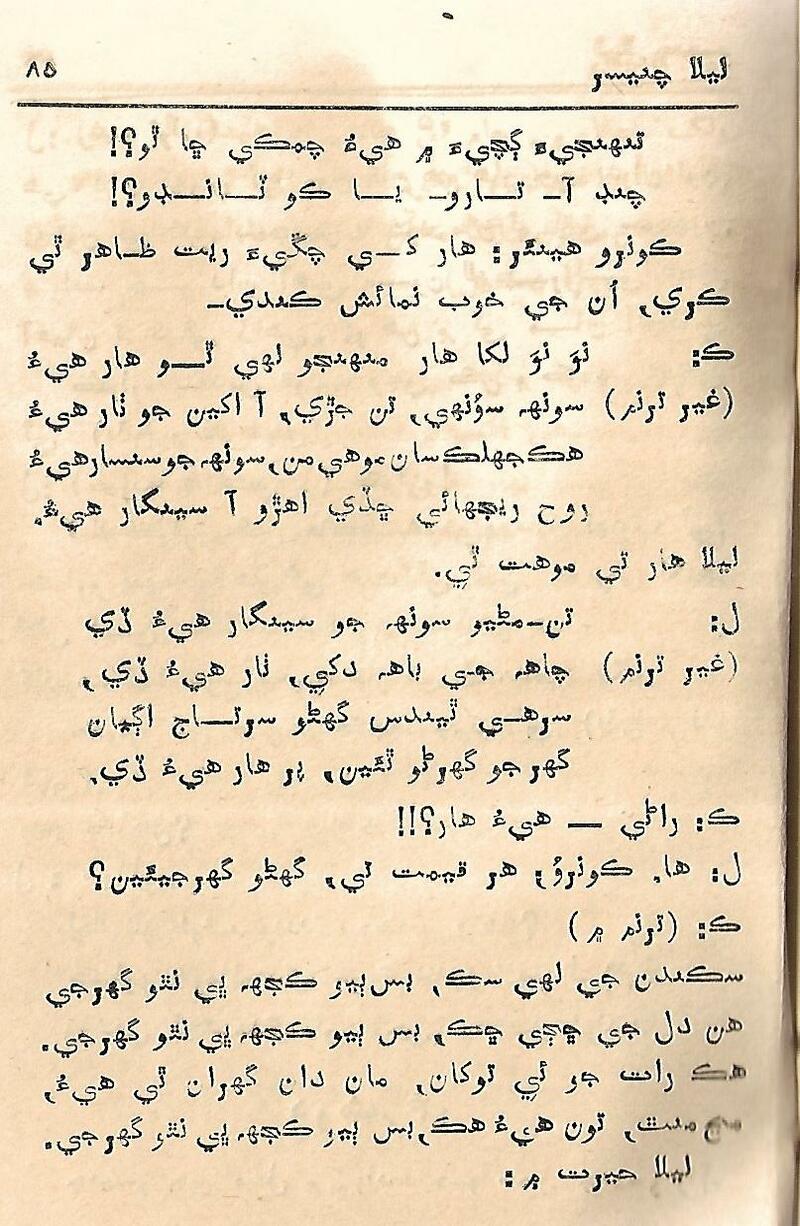 ليلا چنيسر ۸۵
تنهنجيءَ ڳچيءَ ۾ هيءُ چمڪي ڇا ٿو؟!
چنڊ آ۔ تارو۔ يا ڪو ٽانڊو؟!
ڪونرو هينئر: هار کي چڱيءَ ريت ظاهر ٿي
ڪري، اُن جي خوب نمائش ڪندي۔
ڪ: نَوَ نَوَ لکا هار منهنجو لهي ٿو هار هيءُ
(غير ترنم) سونهہ سؤنهي، تن جڙي، آ اکين جو ٺار هيءُ
هڪ جهلڪ سان موهي من، سونهہ جو سنسار هيءُ
روح ريجهائي ڇڏي اهڙو آ سينگار هيءُ.
ليلا هار تي موهت ٿي.
ل: تن۔مڻيو سونهہ جو سينگار هيءُ ڏي
(غير ترنم) چاهہ جي باهہ دکي، ٺار هيءُ ڏي،
سرهي ٿيندس گهڻو سرتاج اڳيان
گهر جو گهرڻو ٿئين، پر هار هيءُ ڏي.
ڪ: راڻي — هيءُ هار؟!!
ل: ها. ڪونرو، هر قيمت تي، گهڻو گهرجيئين؟
ڪ: (ترنم ۾)
سڪندن جي لهي سڪ، بس ٻيو ڪجهہ ٻي نٿو گهرجي
هن دل جي ڇڄي ڇڪ، بس ٻيو ڪجهہ ٻي نٿو گهرجي.
هڪ رات جو ئي توکان، مان دان گهران ٿي هيءُ،
مڃ منٿ، تون هيءُ هڪ، بس ٻيو ڪجهہ ٻي نٿو گهرجي.
ليلا حيرت ۾: